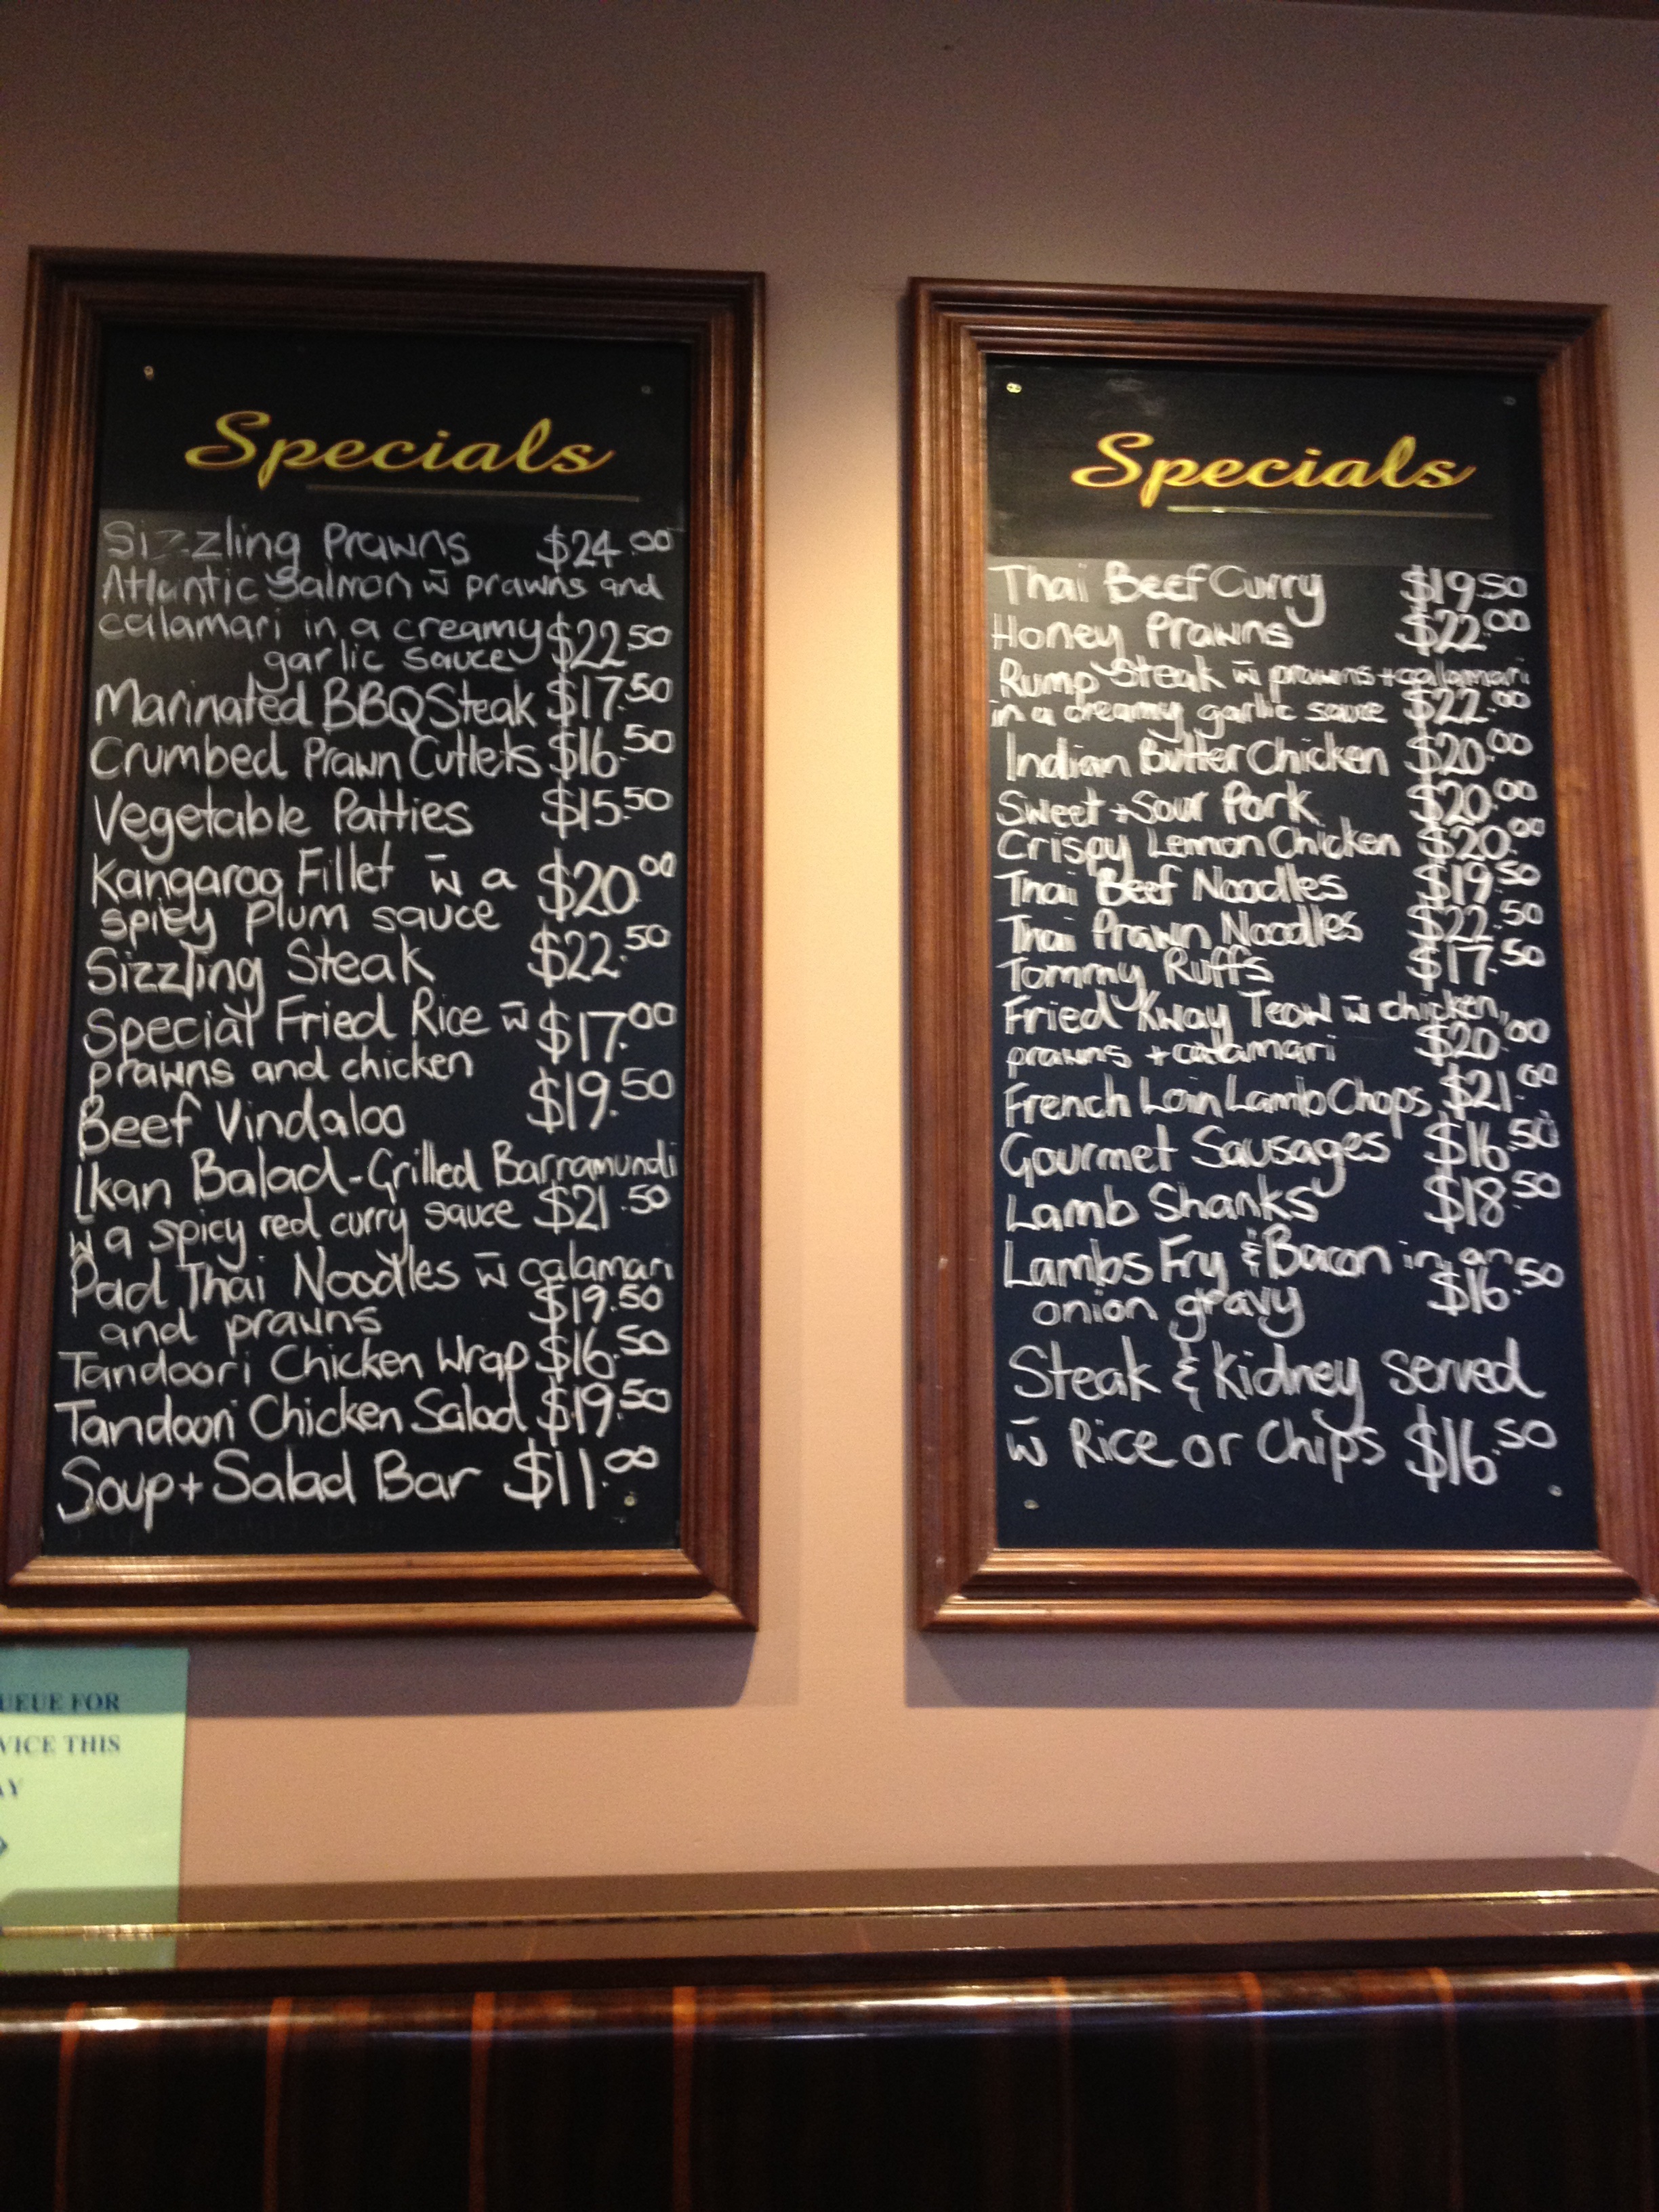 Specials
Sizzling Prawns $24.00
Atlantic Salmon w̄ prawns and
calamari in a creamy $22.50
garlic sauce
Marinated BBQ Steak $17.50
Crumbed Prawn Cutlets $16.50
Vegetable Patties $15.50
Kangaroo Fillet w̄ a $20.00
spicy plum sauce
Sizzling Steak $22.50
Special Fried Rice w̄ $17.00
prawns and chicken
Beef Vindaloo $19.50
Ikan Balad-Grilled Barramundi
w̄ a spicy red curry sauce $21.50
Pad Thai Noodles w̄ calamari
and prawns $19.50
Tandoori Chicken Wrap $16.50
Tandoori Chicken Salad $19.50
Soup + Salad Bar $11.00
Specials
Thai Beef Curry $19.50
Honey Prawns $22.00
Rump Steak w̄ prawns + calamari
in a creamy garlic sauce $22.00
Indian Butter Chicken $20.00
Sweet + Sour Pork $20.00
Crispy Lemon Chicken $20.00
Thai Beef Noodles $19.50
Thai Prawn Noodles $22.50
Tommy Ruffs $17.50
Fried Kway Teow w̄ chicken,
prawns + calamari $20.00
French Loin Lamb Chops $21.00
Gourmet Sausages $16.50
Lamb Shanks $18.50
Lambs Fry & Bacon in an
onion gravy $16.50
Steak & Kidney served
w̄ Rice or Chips $16.50
UEUE FOR
VICE THIS
AY